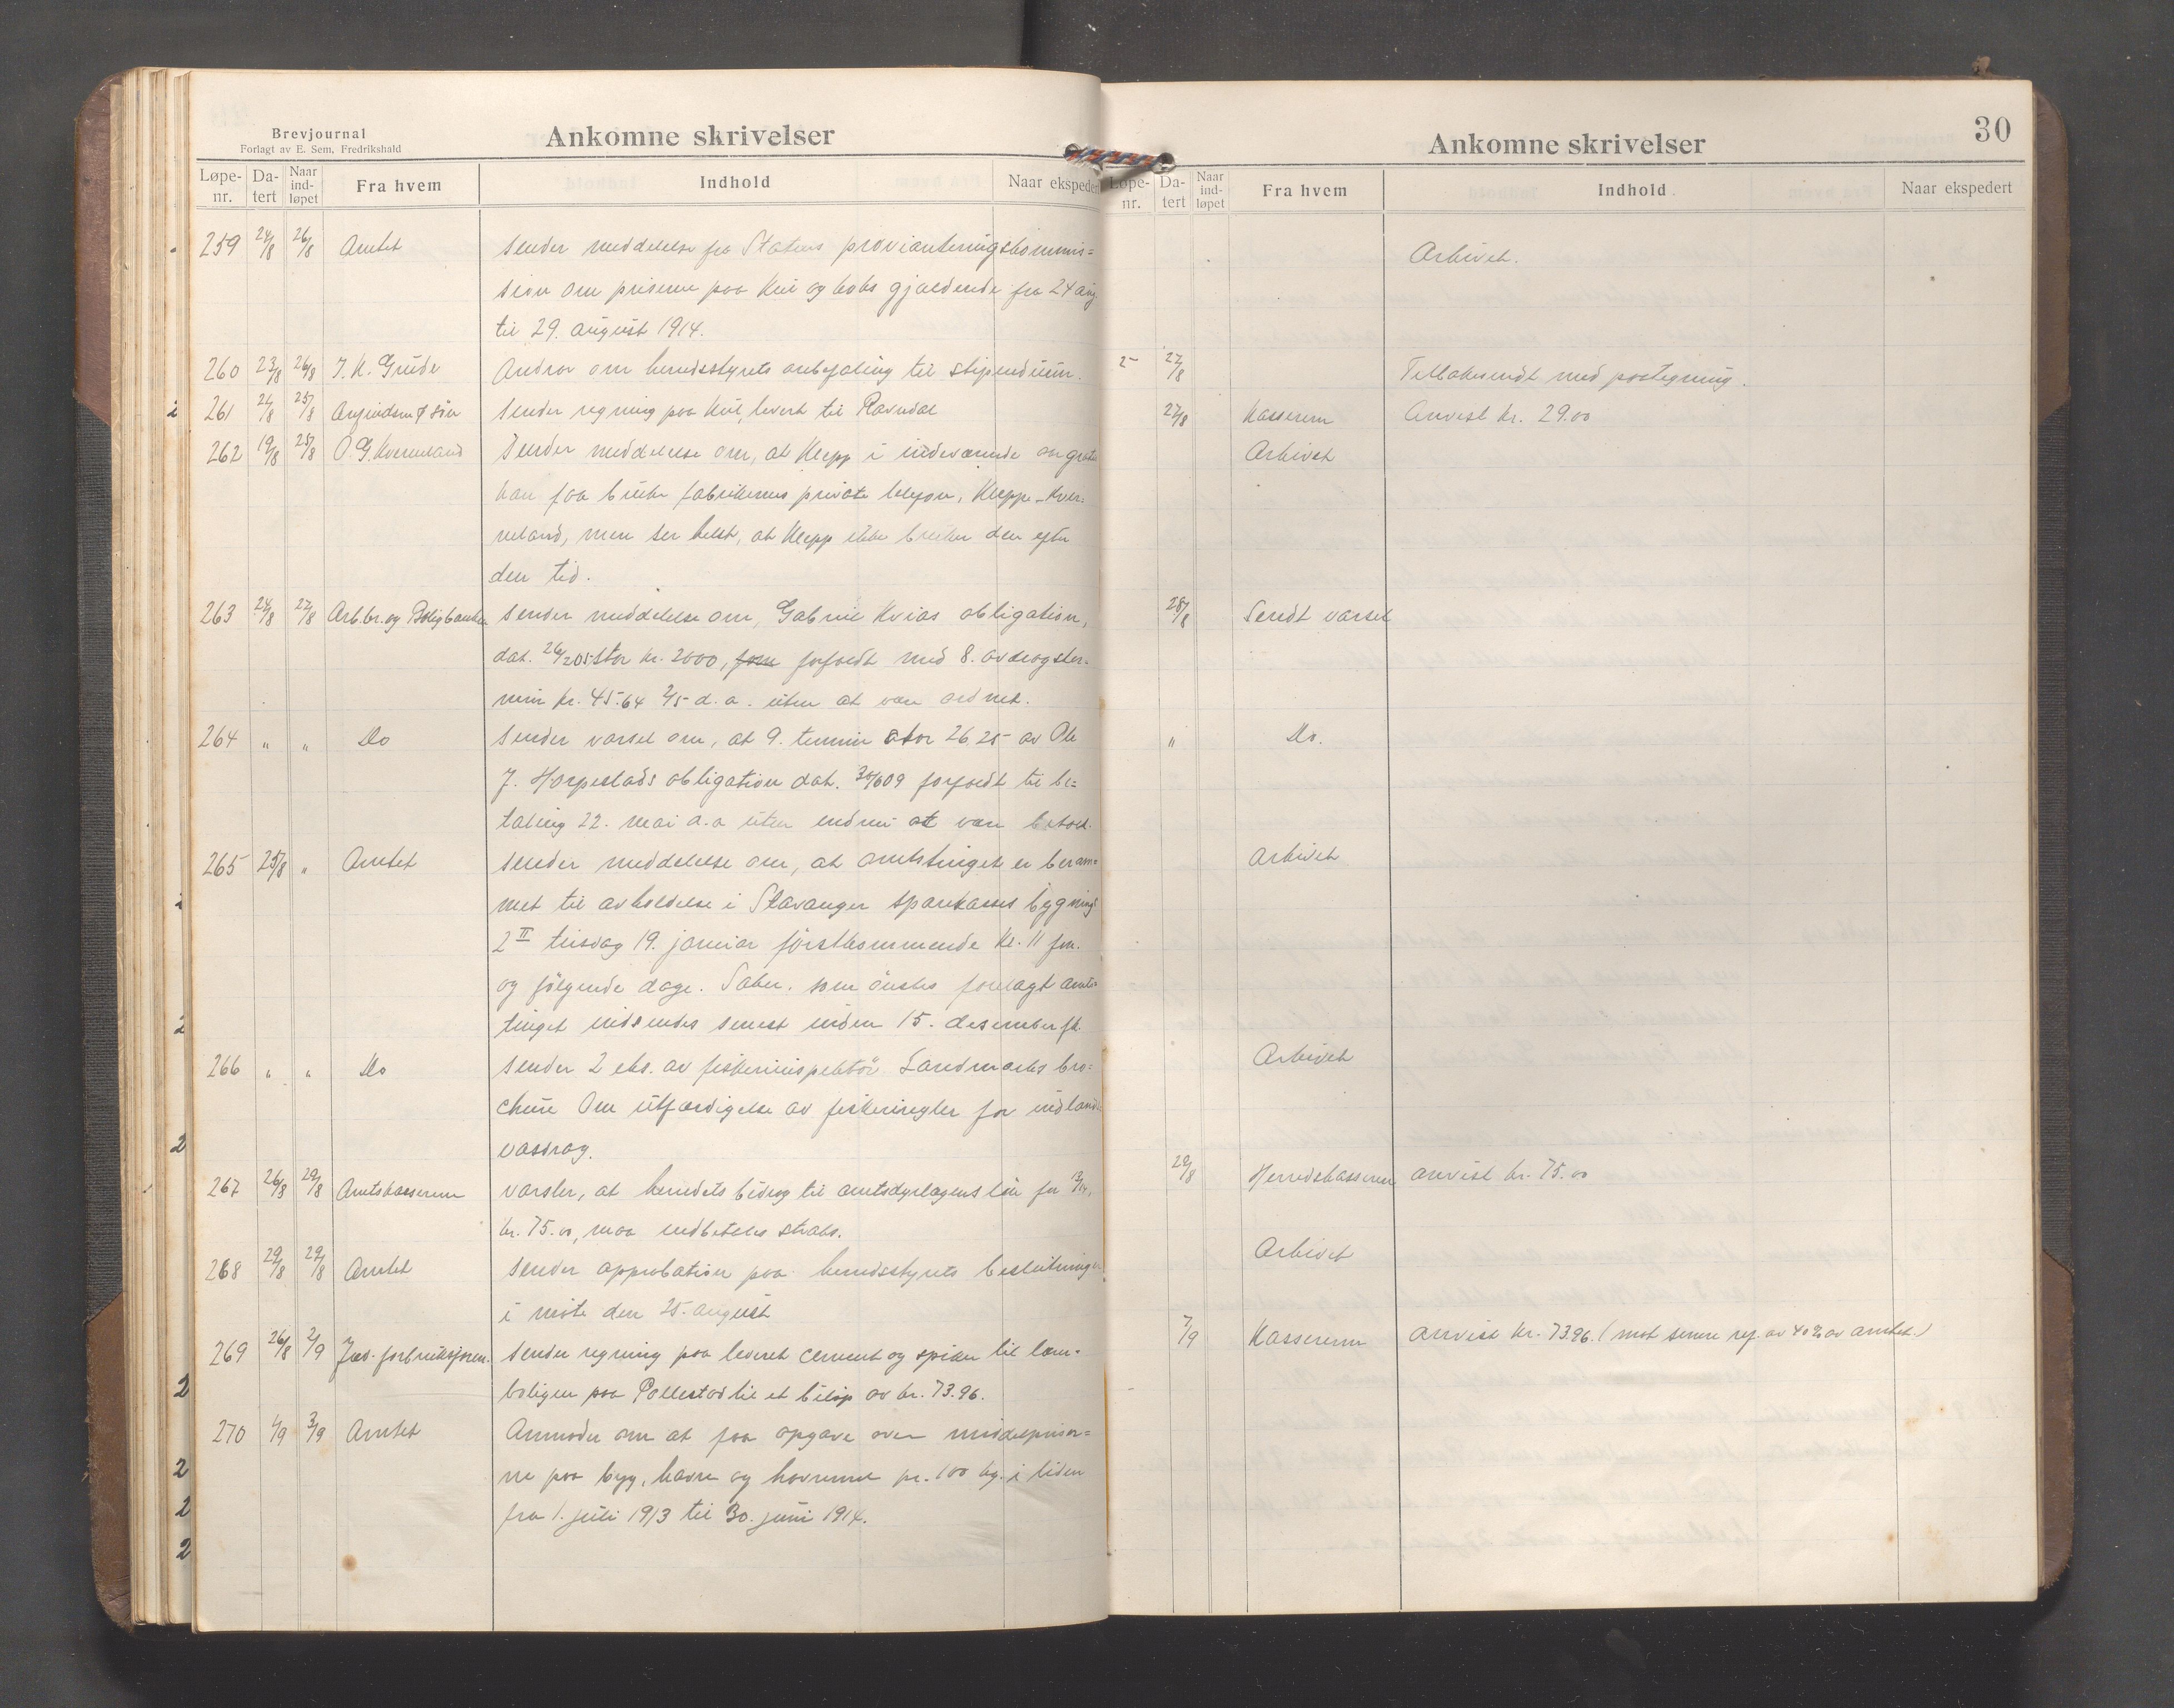 Brevjournal
Forlagt av E. Sem, Fredrikshald
Ankomne skrivelser
Løpe-nr. Da-tert Naar ind-løpet Fra hvem Indhold Naar ekspedert
259 24/8 26/8 Amtet Sender meddelelse fra Statens provianteringskommis=
sion om priserne paa kul og koks gjældende fra 24 aug.
til 29. august 1914.
260 23/8 26/8 J. K. Grude Andrar om herredsstyrets anbefaling til stipendium.
261 24/8 25/8 Sender regning paa kul, levert til Ravndal
262 19/8 25/8 O. G. Kverneland Sender meddelelse om, at Klepp i indeværende aar gratis
kan faa bruke fabrikernes private telefon, Kleppe-Kver=
neland, men ser helst, at Klepp ikke bruker den efter
den tid.
263 24/8 27/8 Arb.br. og Boligbanken Sender meddelelse om, Gabriel Kvias obligation,
dat. 26/2 05 stor kr. 2000, som forfaldt med 8. avdragster-
min kr. 45.64 2/5 d. a. uten at være ordnet.
264 " " Do Sender varsel om, at 9. termin stor 26.25 av Ole
J. Horpestads obligation dat. 30/6 09 forfaldt til be=
taling 22. mai d. a uten endnu at være betalt.
265 25/8 " Amtet Sender meddelelse om, at amtstinget er beram=
met til avholdelse i Stavanger sparekasses bygning
2 II tirsdag 19. januar førstkommende kl. 11 fm.
og følgende dage. Saker, som ønskes forelagt amts=
tinget indsendes senest inden 15. desember fk.
266 " " Do Sender 2 eks. av fiskeriinspektør Landmarks bro=
chure Om utfærdigelse av fiskeriregler for indlands
vasdrag.
267 26/8 29/8 Amtskassereren varsler, at herredets bidrag til amtsdyrlægens løn for 13/14,
kr. 75.00, maa indbetales straks.
268 29/8 29/8 Amtet Sender approbation paa herredsstyrets beslutninger
i møte den 25. august
269 26/8 2/9 Jæd. forbruksforen. Sender regning paa leveret cement og spiker til læn-
boligen paa Pollestad til et beløp av kr. 73.96.
270 1/9 3/9 Amtet Anmoder om at faa opgave over middelpriser=
ne paa byg, havre og havremel pr. 100 kg. i tiden
fra 1. juli 1913 til 30. juni 1914.
Ankomne skrivelser
30
Løpe-nr. Da-tert Naar ind-løpet Fra hvem Indhold Naar ekspedert
Arkivet.
27/8 Tilbakesendt med paategning.
27/8 Kassereren Anvist kr. 29.00
Arkivet
28/8 Sendt varsel
" Do.
Arkivet
Arkivet
29/8 Herredskassereren anvist kr. 75.00
Arkivet
7/9 Kassereren anvist kr. 73.96. (mot senere ref. av 40% av amtet.)